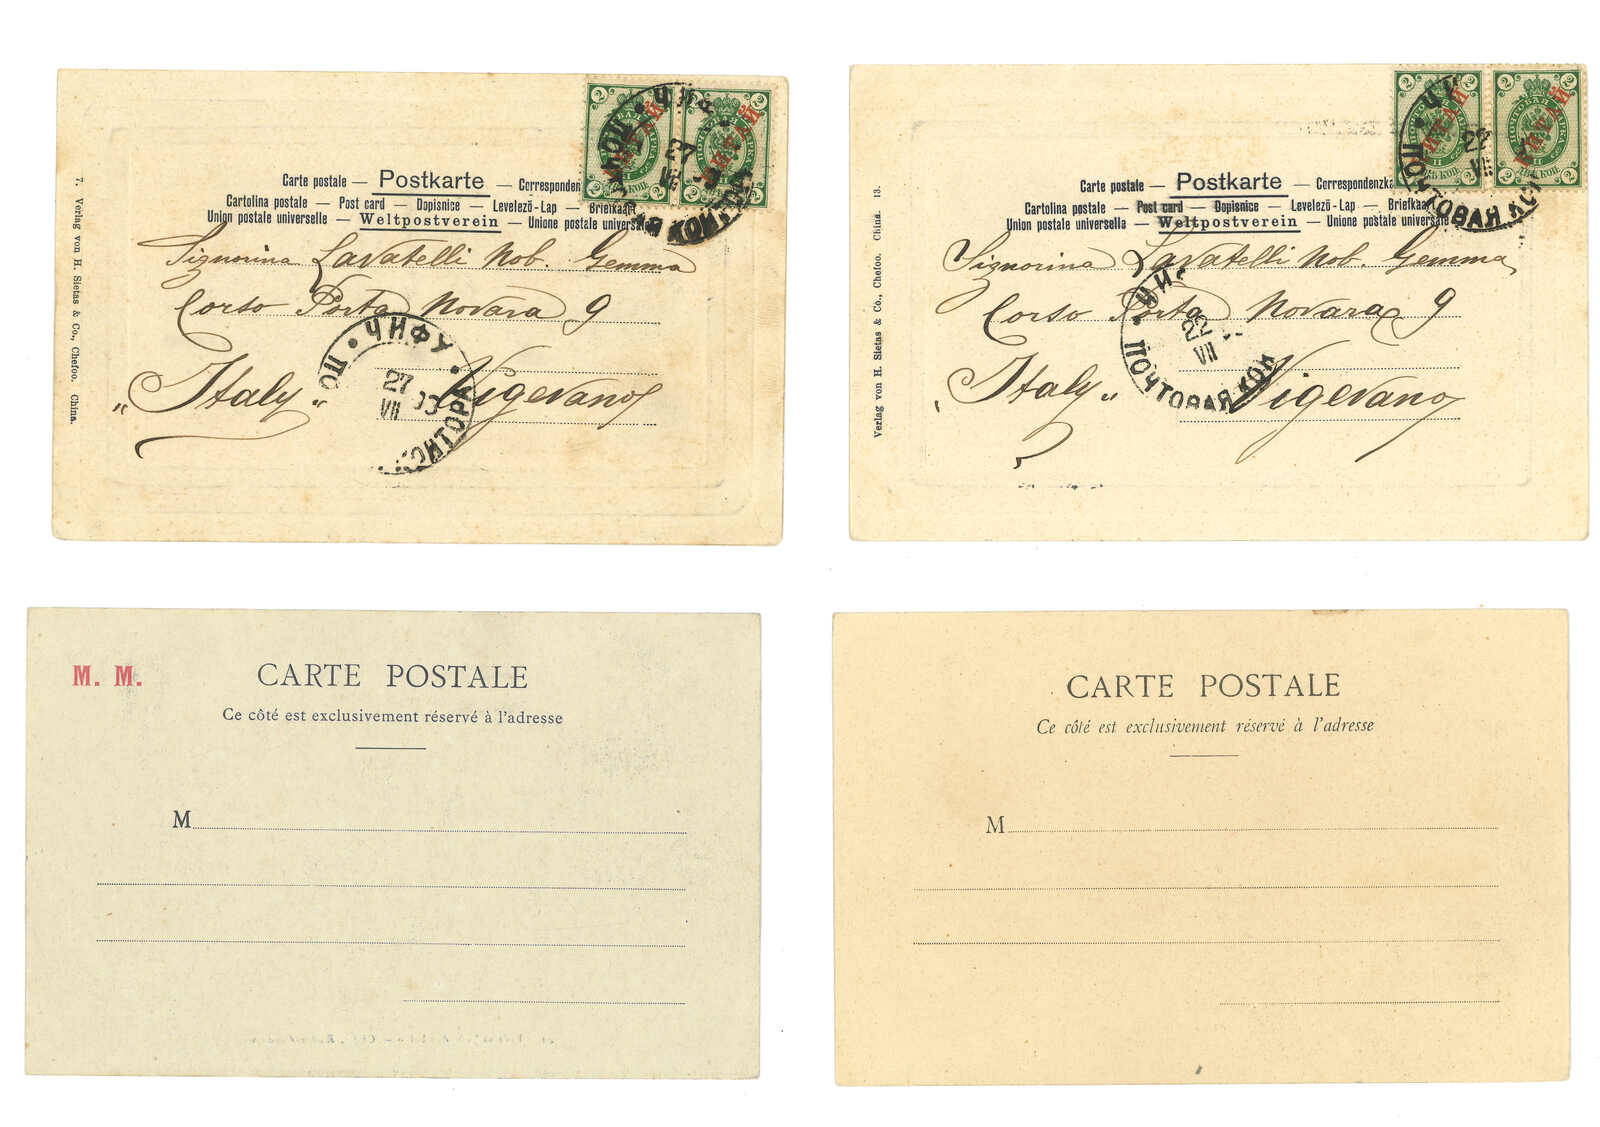 7. Verlag von H. Sietas & Co., Chefoo. China.
Carte postale — Postkarte — Corresponden
Cartolina postale — Post card — Dopisnice — Levelező-Lap — Briefkaart
Union postale universelle — Weltpostverein — Unione postale universale
Signorina Lavatelli Nob. Gemma
Corso Porta Novara 9
„Italy“ Vigevano
2 2
КИТАЙ
2 2
КИТАЙ
ЧИФУ
27
VII
ЧИФУ
27
VII 03
КОНТОРА
13. Verlag von H. Sietas & Co., Chefoo. China.
Carte postale — Postkarte — Correspondenzka
Cartolina postale — Post card — Dopisnice — Levelező-Lap — Briefkaart
Union postale universelle — Weltpostverein — Unione postale universale
Signorina Lavatelli Nob. Gemma
Corso Porta Novara 9
„Italy“ Vigevano
2 2
КИТАЙ
2 2
ПОЧТОВАЯ МАРКА
КИТАЙ
22
VII
ПОЧТОВАЯ КОН
ЧИФ
22
VII
ПОЧТОВАЯ КОН
M. M.
CARTE POSTALE
Ce côté est exclusivement réservé à l'adresse
M
CARTE POSTALE
Ce côté est exclusivement réservé à l'adresse
M